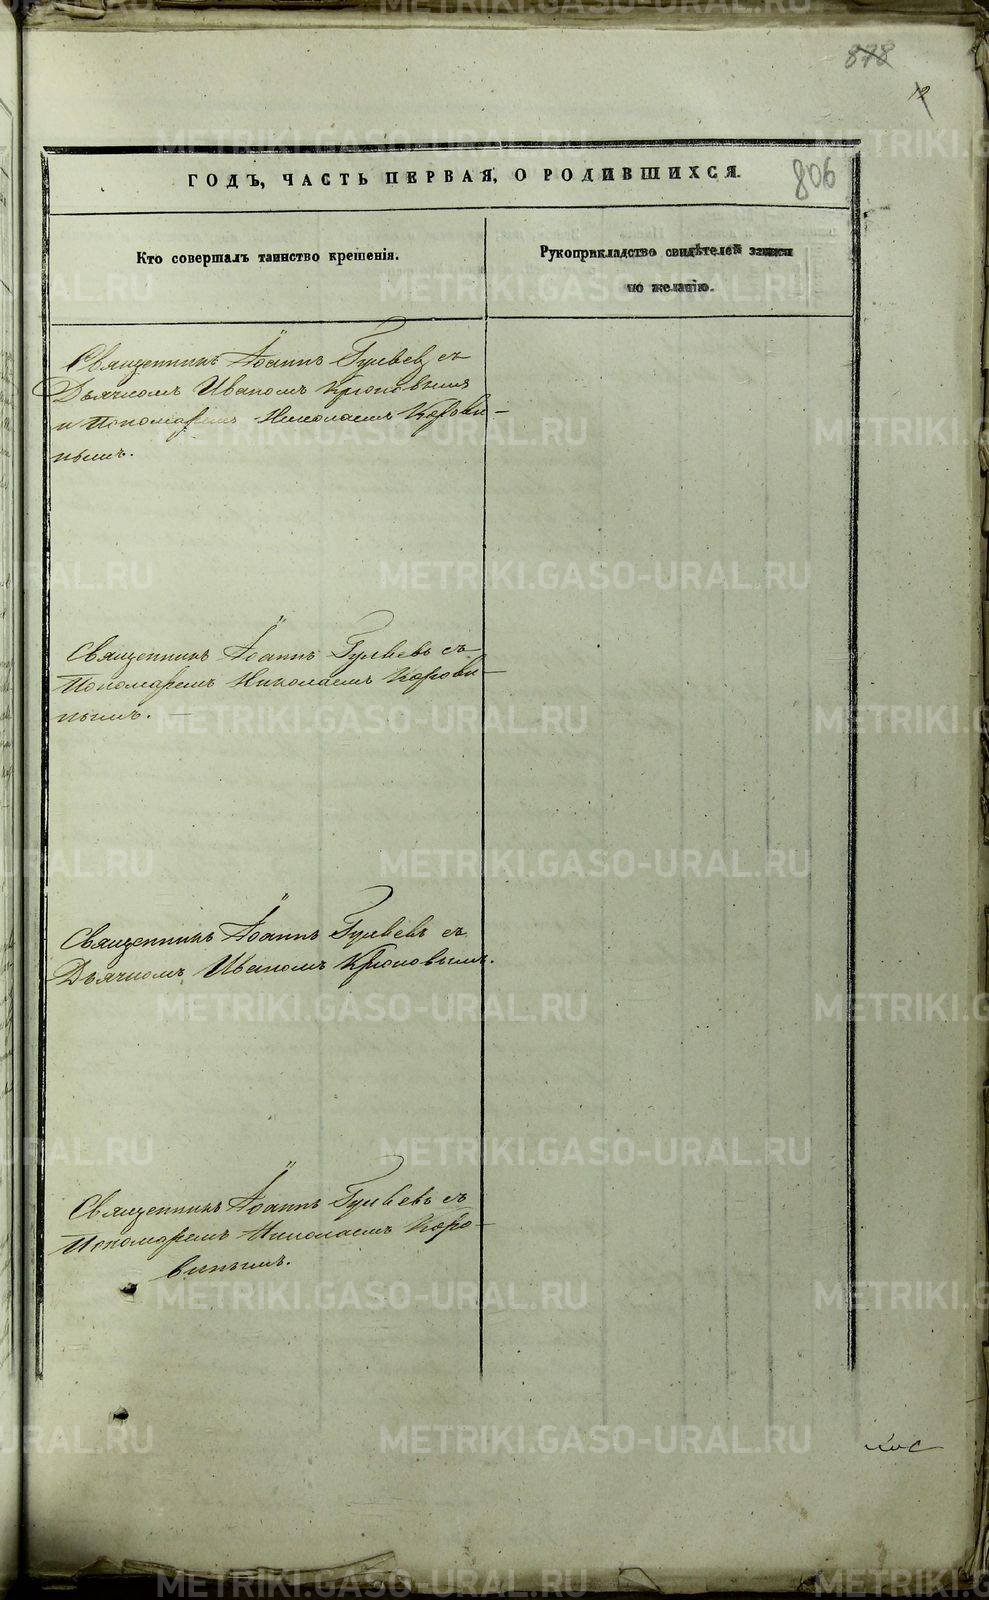 878
12
ГОДЪ, ЧАСТЬ ПЕРВАЯ, О РОДИВШИХСЯ.
806
Кто совершалъ таинство крещенія.
Рукоприкладство свидѣтелей записи
по желанію.
Священникъ Іоаннъ Гуляевъ съ
Дьячкомъ Иваномъ Крюковымъ
и Пономаремъ Николаемъ Корови-
нымъ.
Священникъ Іоаннъ Гуляевъ съ
Пономаремъ Николаемъ Корови-
нымъ. —
Священникъ Іоаннъ Гуляевъ съ
Дьячкомъ Иваномъ Крюковымъ.
Священникъ Іоаннъ Гуляевъ съ
Пономаремъ Николаемъ Коро-
винымъ.
METRIKI.GASO-URAL.RU